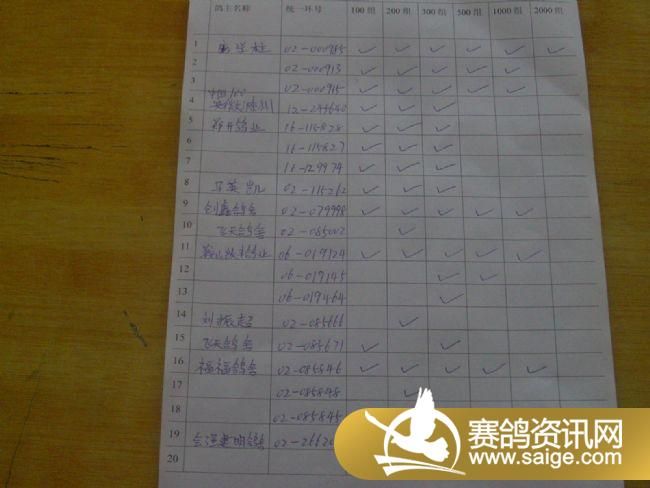 鸽主名称 统一环号 100 组 200 组 300 组 500 组 1000 组 2000 组
1 02-000985 ✓ ✓ ✓ ✓ ✓ ✓
2 02-000913 ✓ ✓ ✓ ✓ ✓
3 02-000915 ✓ ✓ ✓ ✓ ✓
4 12-243640 ✓ ✓ ✓
5 16-115828 ✓ ✓ ✓
6 16-115827 ✓ ✓ ✓
7 16-129974 ✓ ✓ ✓
8 马英凯 02-115262 ✓ ✓ ✓
9 创鑫鸽舍 02-079998 ✓ ✓ ✓ ✓ ✓
10 飞天鸽舍 02-085002 ✓
11 06-019124 ✓ ✓ ✓ ✓ ✓
12 06-019145 ✓ ✓
13 06-019464 ✓
14 刘振超 02-085666 ✓
15 飞天鸽舍 02-085671 ✓ ✓
16 福福鸽舍 02-085846 ✓ ✓ ✓ ✓ ✓
17 02-085848 ✓
18 02-085845
19 02-2662
20
赛鸽资讯网
www.saige.com